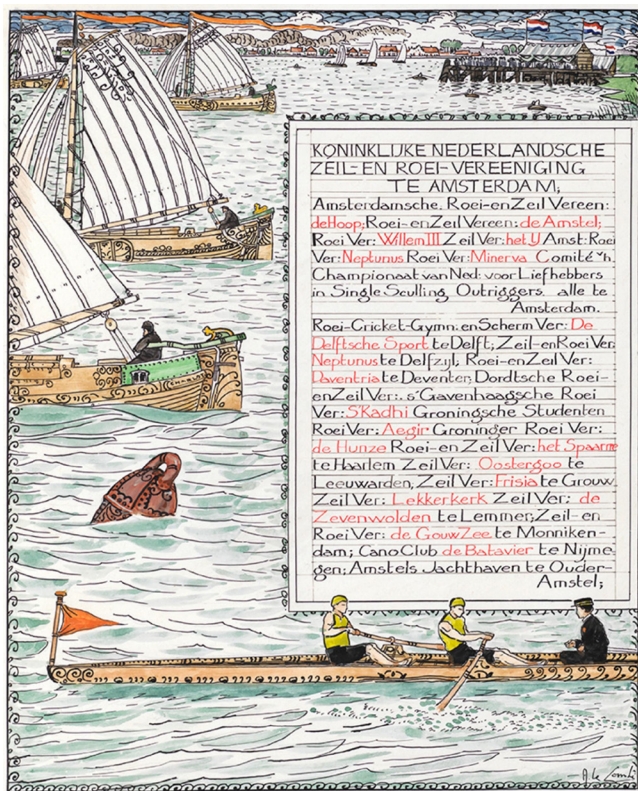 KONINKLIJKE NEDERLANDSCHE
ZEIL- EN ROEI-VEREENIGING
TE AMSTERDAM;
Amsterdamsche. Roei-en Zeil Vereen:
de Hoop; Roei-en Zeil Vereen: de Amstel;
Roei Ver: Willem III Zeil Ver: het Y Amst: Roei
Ver: Neptunus Roei Ver: Minerva Comité v.h.
Championaat van Ned. voor Liefhebbers
in Single Sculling Outriggers alle te
Amsterdam.
Roei-Cricket-Gymn: en Scherm Ver: De
Delftsche Sport te Delft; Zeil-en Roei Ver:
Neptunus te Delfzyl; Roei-en Zeil Ver:
Daventria te Deventer; Dordtsche Roei-
en Zeil Ver: s'Gavenhaagsche Roei
Ver: S'Kadhi Groningsche Studenten
Roei Ver: Aegir Groninger Roei Ver:
de Hunze Roei-en Zeil Ver: het Spaarne
te Haarlem Zeil Ver: Oostergoo te
Leeuwarden; Zeil Ver: Frisia te Grouw.
Zeil Ver: Lekkerkerk Zeil Ver: de
Zevenwolden te Lemmer; Zeil-en
Roei Ver: de Gouw Zee te Monniken-
dam; Cano Club de Batavier te Nijme-
gen; Amstels Jachthaven te Ouder-
Amstel;
A le Comte